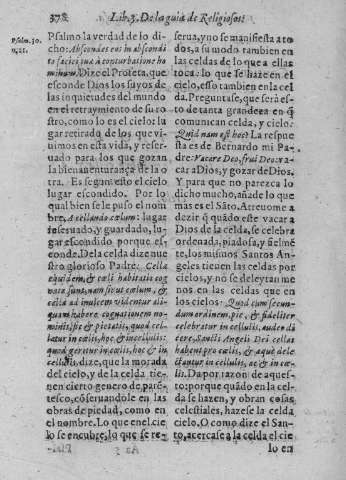 378 Lib.3. De la guia de Religiosos:
Psalm.30.
n.21.
Psalmo la verdad de lo di-
cho: Abscondes eos in abscondi
to faciei tuæ à conturbatione ho
minum. Dize el Profeta, que
esconde Dios los suyos de
las inquietudes del mundo
en el retraymiento de su ro
stro, como lo es el cielo: lu
gar retirado de los que vi-
uimos en esta vida, y reser-
uado para los que gozan
la bienauenturança de la o
tra. Es segun esto el cielo
lugar escondido. Por lo
qual bien se le puso el nom
bre, à cellando cælum: lugar
sellado, y guardado, lu-
gar escondido porque es-
conde. De la celda dize nue
stro glorioso Padre: Cella
quidem, & cæli habitatio cog
nata sunt, nam sicut cælum, &
cella ad inuicem videntur ali-
quam habere cognationem no-
minis, sic & pietatis, quod cel-
latur in cælis, hoc & in cellulis:
quod geritur in cælis, hoc & in
cellulis. dize, que la morada
del cielo, y de la celda tie-
nen cierto genero de pare-
tesco, cõseruandole en las
obras de piedad, como en
el nombre. Lo que en el cie
lo se encubre, lo que se re-
serua, y no se manifiesta a to
dos, a su modo tambien en
las celdas de lo que a ellas
toca: lo que se haze en el
cielo, esso tambien en la cel
da. Preguntase, que serà es-
to de tanta grandeza en q̃
comunican celda, y cielo?
Quid nam est hoc? La respue
sta es de Bernardo mi Pa-
dre: Vacare Deo, frui Deo: va
car a Dios, y gozar de Dios.
Y para que no parezca lo
dicho mucho, añade lo que
mas es el Sãto. Atreuome a
dezir q̃ quãdo este vacar a
Dios de la celda, se celebra
ordenada, piadosa, y fielmẽ
te, los mismos Santos An-
geles tienen las celdas por
cielos, y no se deleytan me
nos en las celdas que en
los cielos: Quod cum secun-
dum ordinem pie, & fideliter
celebratur in cellulis, audeo di
cere, Sancti Angeli Dei cellas
habent pro cælis, & æque dele
ctantur in cellulis, ac & in cæ-
lis. Da por razon de aques-
to: porque quãdo en la cel-
da se hazen, y obran cosas
celestiales, hazese la celda
cielo. O como dize el San-
to, acercase a la celda el cie
Aa 5
lo en